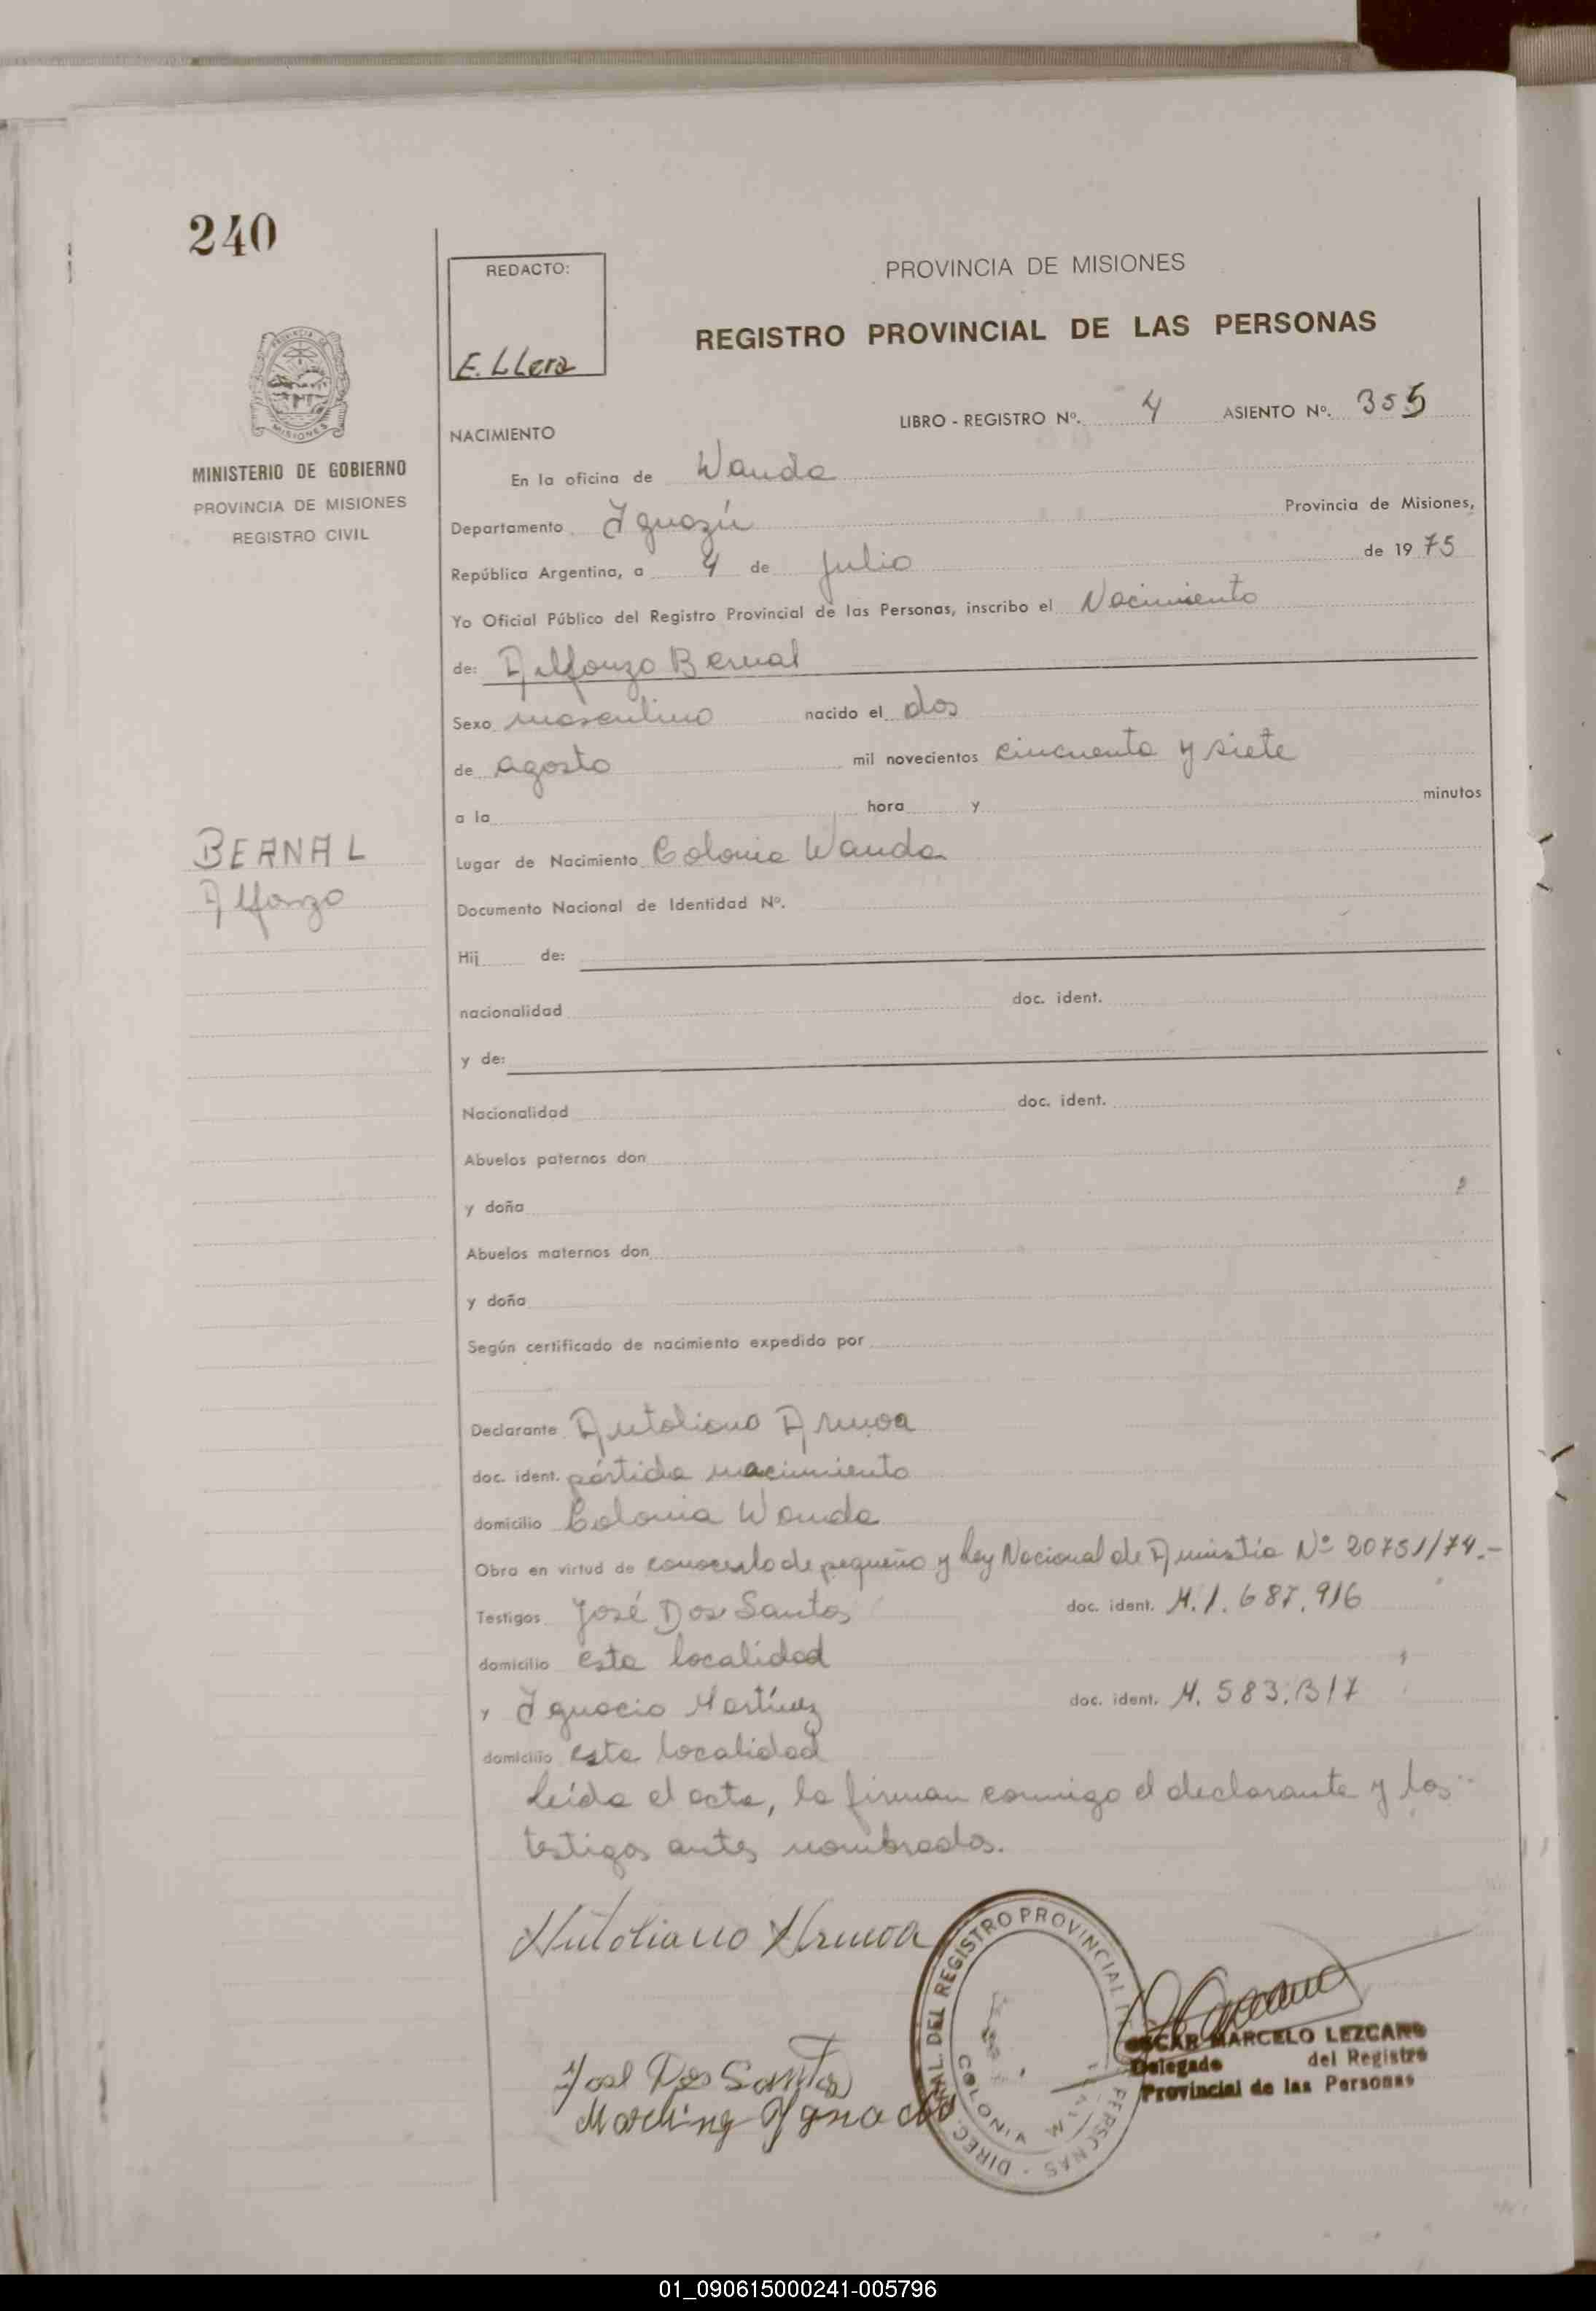 240
REDACTO:
E. LLera
PROVINCIA DE MISIONES
REGISTRO PROVINCIAL DE LAS PERSONAS
MISIONES
MINISTERIO DE GOBIERNO
PROVINCIA DE MISIONES
REGISTRO CIVIL
LIBRO - REGISTRO Nº. 4 ASIENTO Nº. 355
NACIMIENTO
En la oficina de Wanda
Departamento Iguazú Provincia de Misiones,
República Argentina, a 4 de Julio de 1975
Yo Oficial Público del Registro Provincial de las Personas, inscribo el Nacimiento
de: Alfonzo Bernal
Sexo masculino nacido el dos
de agosto mil novecientos cincuenta y siete
a la hora y minutos
BERNAL
Alfonzo
Lugar de Nacimiento Colonia Wanda
Documento Nacional de Identidad Nº.
Hij de:
nacionalidad doc. ident.
y de:
Nacionalidad doc. ident.
Abuelos paternos don
y doña
Abuelos maternos don
y doña
Según certificado de nacimiento expedido por
Declarante Autoliano Armoa
doc. ident. pártida nacimiento
domicilio Colonia Wanda
Obra en virtud de conocerlo de pequeño y Ley Nacional de Amnistia Nº 20751/74.-
Testigos José Dos Santos doc. ident. M.1.687.916
domicilio esta localidad
y Ignacio Martínez doc. ident. M. 583.317
domicilio esta localidad
Leída el acta, la firman conmigo el declarante y los
testigos antes nombrados.
Autoliano Armoa
José Dos Santos
Martinez Ygnacio
DIREC. GRAL. DEL REGISTRO PROVINCIAL PERSONAS
COLONIA WANDA
OSCAR MARCELO LEZCANO
Delegado del Registro
Provincial de las Personas
01_090615000241-005796